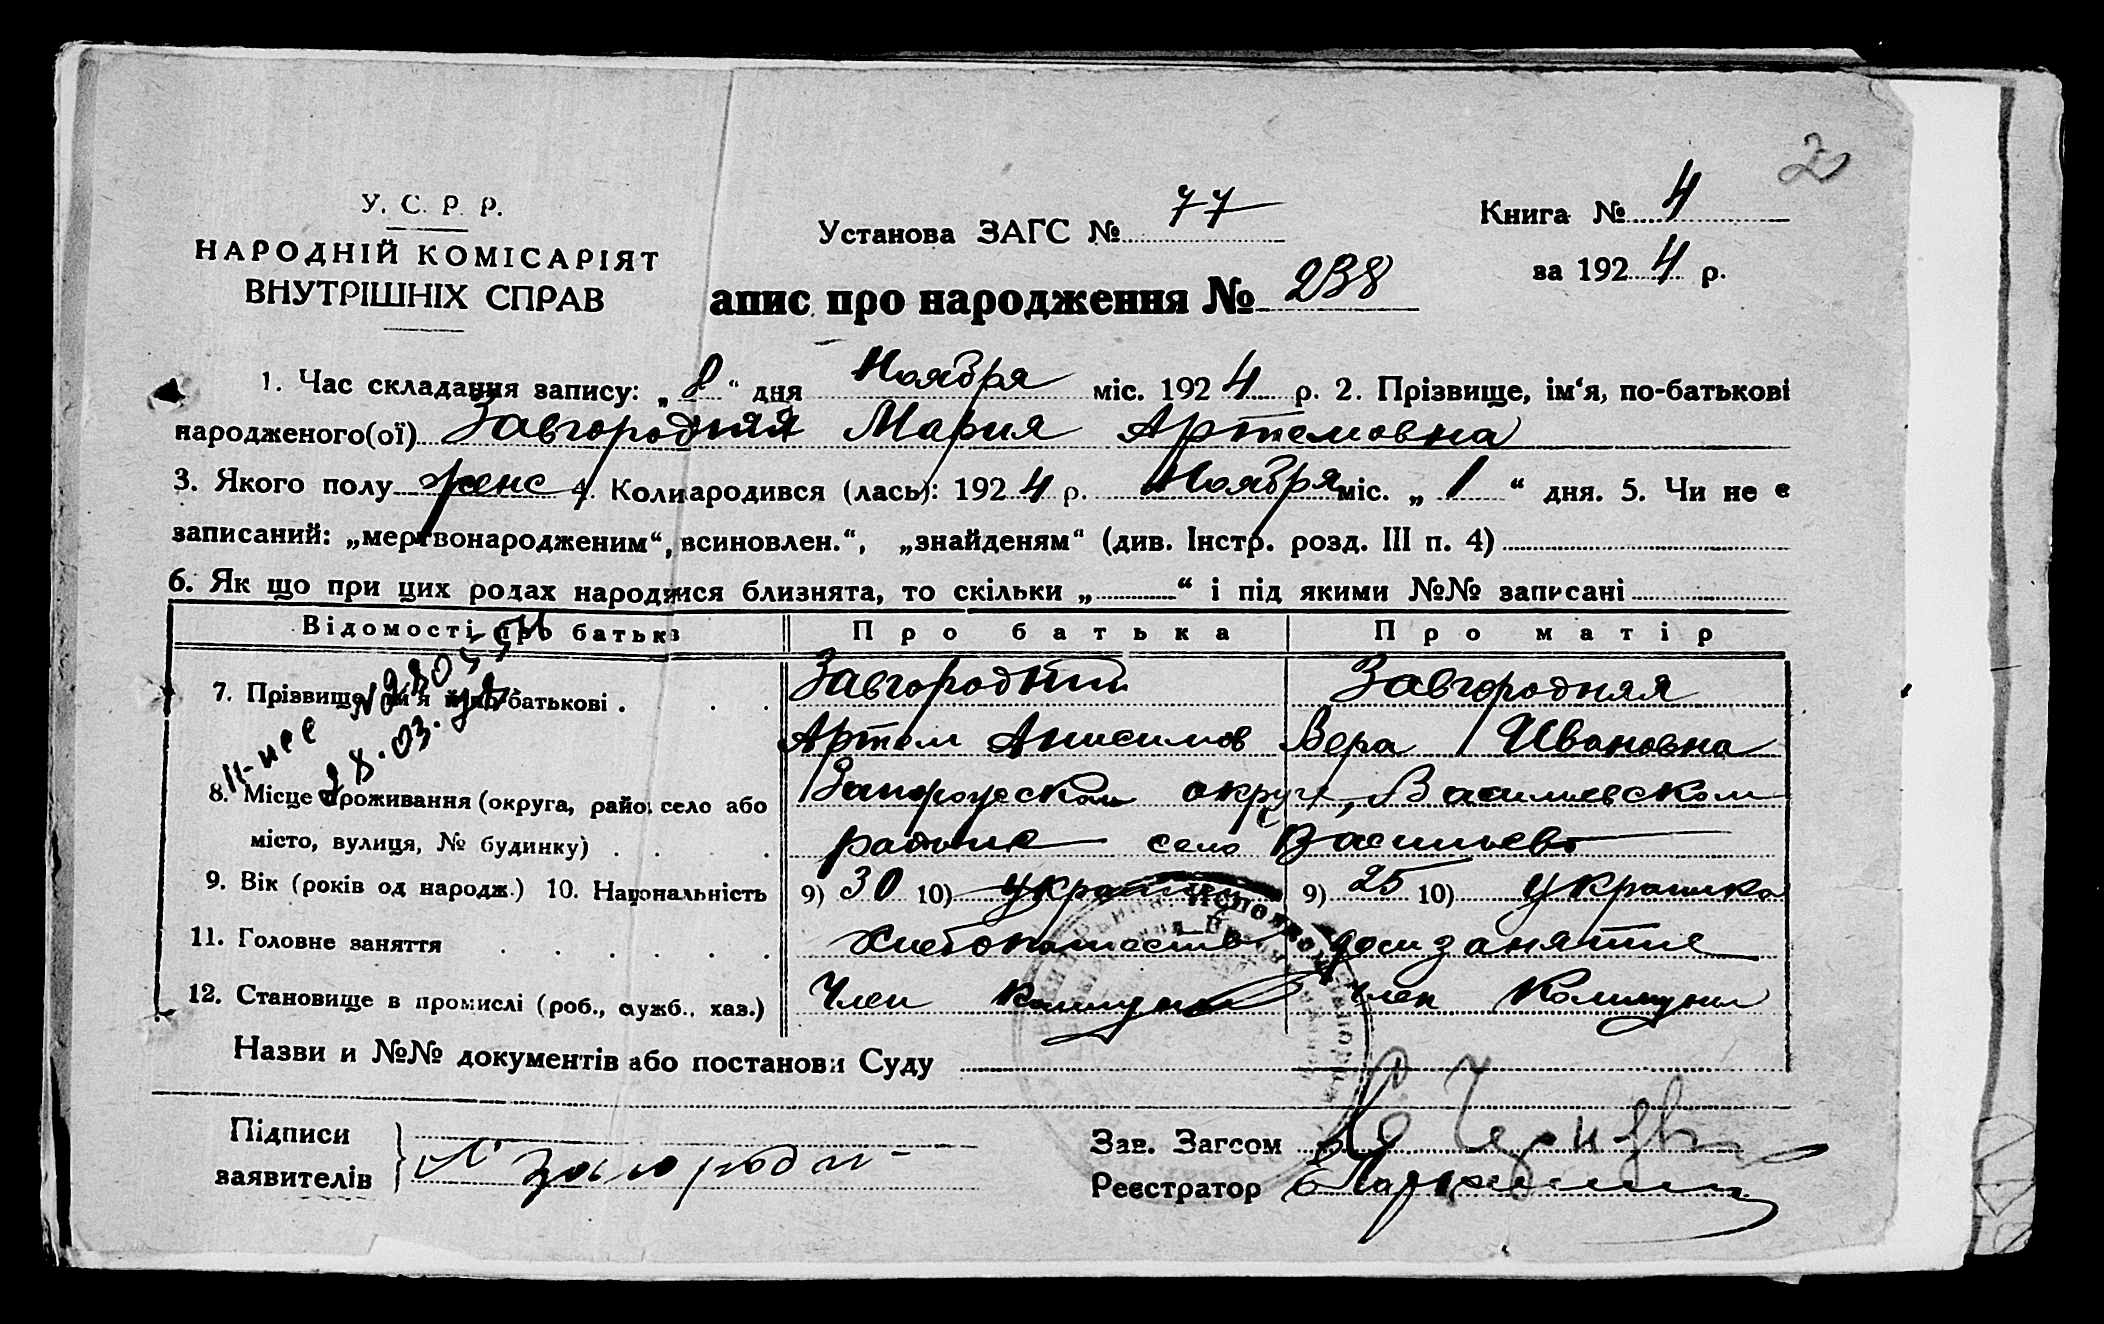 2
У. С. Р. Р.
НАРОДНІЙ КОМІСАРІЯТ
ВНУТРІШНІХ СПРАВ
Установа ЗАГС № 77
Книга № 4
за 1924 р.
апис про народження № 238
1. Час складання запису: „8“ дня Ноября міс. 1924 р. 2. Прізвище, ім‘я, по-батькові
народженого(ої) Завгородняя Мария Артемовна
3. Якого полу женс 4. Коли народився (лась): 1924 р. Ноября міс. „1“ дня. 5. Чи не є
записаний: „мертвонародженим“, всиновлен.“, „знайденям“ (див. Інстр. розд. III п. 4)
6. Як що при цих родах народився близнята, то скільки „ “ і під якими №№ записані
Відомості про батьків Про батька Про матір
7. Прізвище, ім‘я й по-батькові Завгородний Завгородняя
Артем Анисимов Вера Ивановна
8. Місце проживання (округа, район, село або Запорожском округе, Василиевском
місто, вулиця, № будинку) районе село Васильевка
9. Вік (років од народж.) 10. Національність 9) 30 10) 9) 25 10) украинка
11. Головне заняття хлебопашество дом занятие
12. Становище в промислі (роб., служб., хаз.) Член Коммуны Член Коммуны
28.03.
Назви и №№ документів або постанови Суду
Підписи
заявителів
Зав. Загсом
Реєстратор